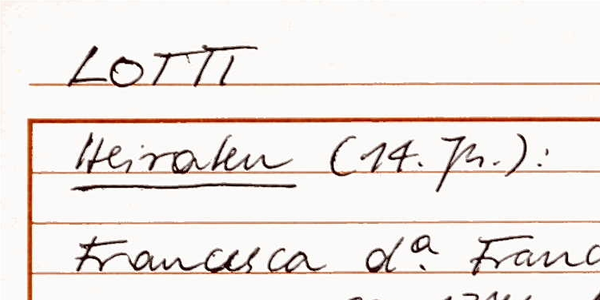 LOTTI
Heiraten (14. Jh.):
Francesca dª. Franc